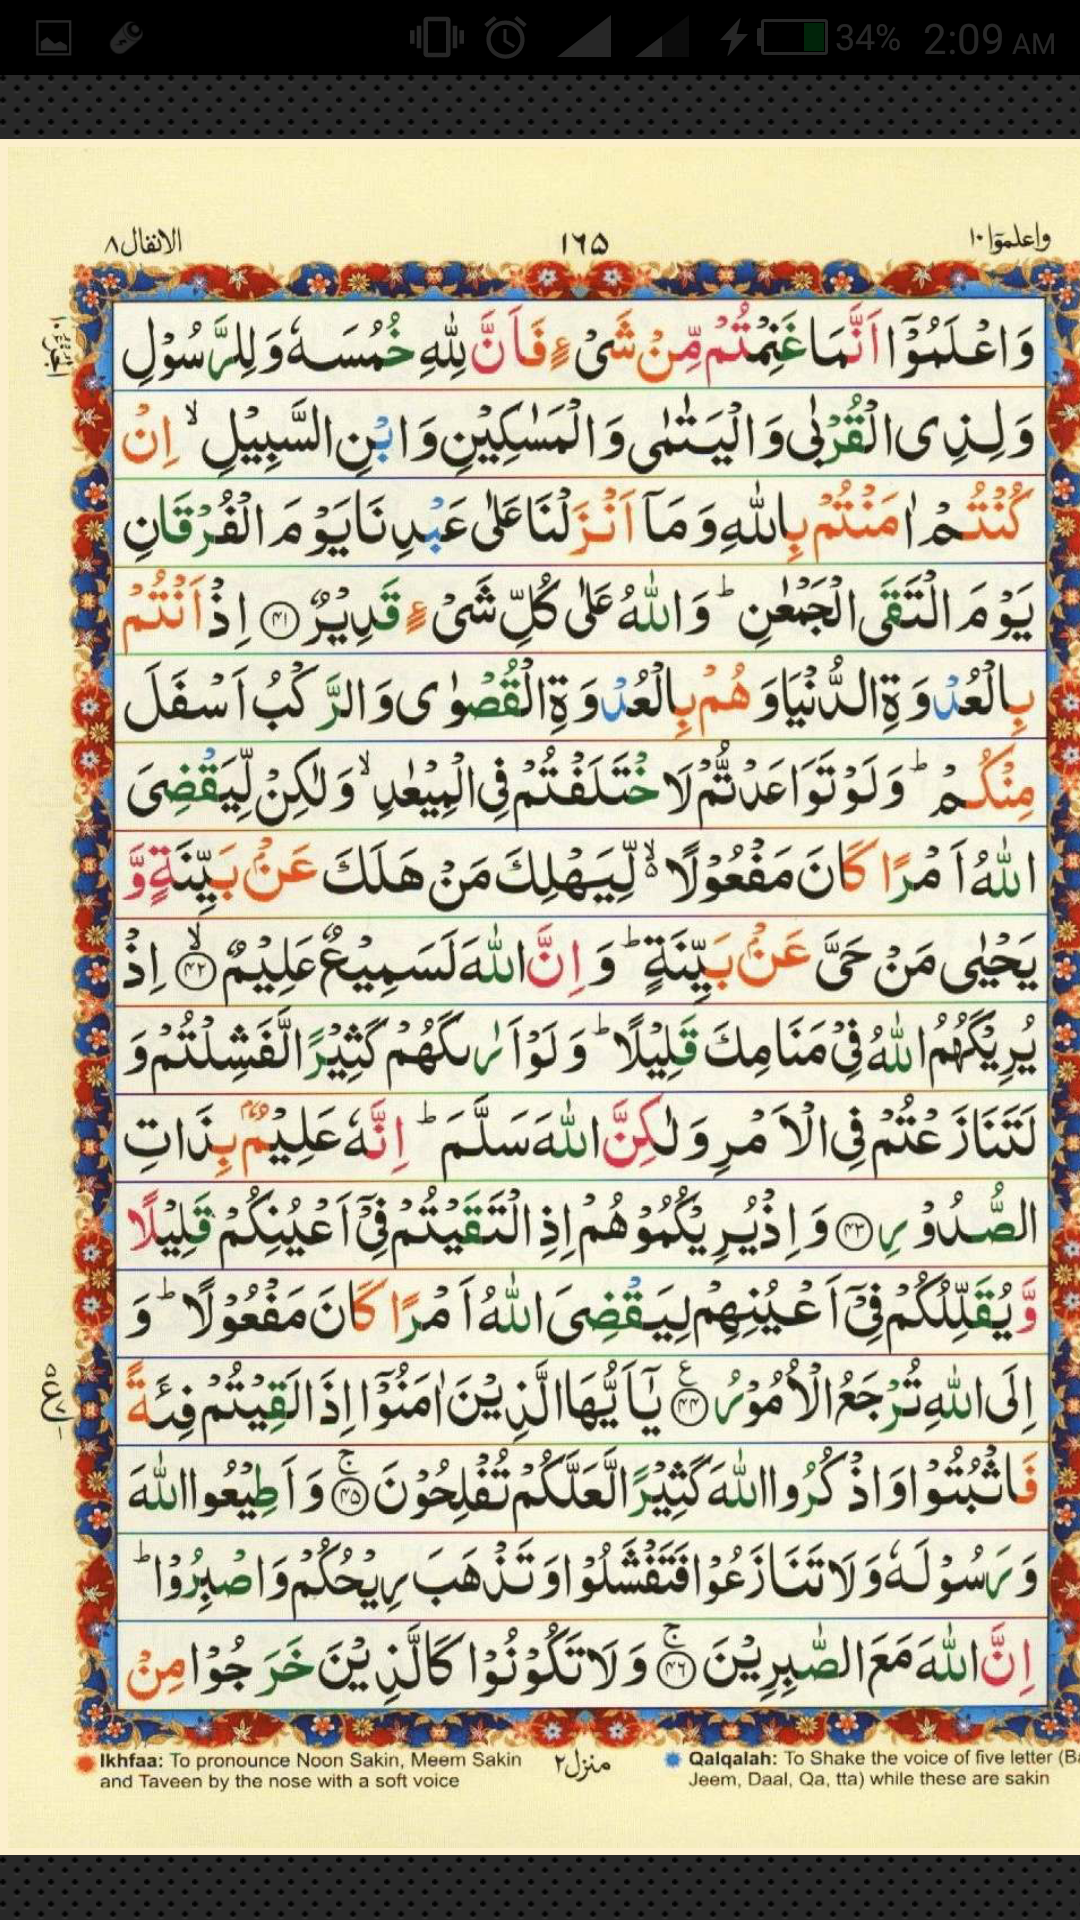 34% 2:09 AM
واعلموٓا ١٠
١٦٥
الانفال ٨
وَاعْلَمُوْٓا اَنَّمَا غَنِمْتُمْ مِّنْ شَىْءٍ فَاَنَّ لِلّٰهِ خُمُسَهٗ وَلِلرَّسُوْلِ
وَلِذِى الْقُرْبٰى وَالْيَتٰمٰى وَالْمَسٰكِيْنِ وَابْنِ السَّبِيْلِ ۙ اِنْ
كُنْتُمْ اٰمَنْتُمْ بِاللّٰهِ وَمَآ اَنْزَلْنَا عَلٰى عَبْدِنَا يَوْمَ الْفُرْقَانِ
يَوْمَ الْتَقَى الْجَمْعٰنِ ؕ وَاللّٰهُ عَلٰى كُلِّ شَىْءٍ قَدِيْرٌ ﴿۴۱﴾ اِذْ اَنْتُمْ
بِالْعُدْوَةِ الدُّنْيَا وَهُمْ بِالْعُدْوَةِ الْقُصْوٰى وَالرَّكْبُ اَسْفَلَ
مِنْكُمْ ؕ وَلَوْ تَوَاعَدْتُّمْ لَاخْتَلَفْتُمْ فِى الْمِيْعٰدِ ۙ وَلٰكِنْ لِّيَقْضِىَ
اللّٰهُ اَمْرًا كَانَ مَفْعُوْلًا ۙ۬ لِّيَهْلِكَ مَنْ هَلَكَ عَنْۢ بَيِّنَةٍ وَّ
يَحْيٰى مَنْ حَىَّ عَنْۢ بَيِّنَةٍ ؕ وَاِنَّ اللّٰهَ لَسَمِيْعٌ عَلِيْمٌ ۙ﴿۴۲﴾ اِذْ
يُرِيْكَهُمُ اللّٰهُ فِىْ مَنَامِكَ قَلِيْلًا ؕ وَلَوْ اَرٰىكَهُمْ كَثِيْرًا لَّفَشِلْتُمْ وَ
لَتَنَازَعْتُمْ فِى الْاَمْرِ وَلٰكِنَّ اللّٰهَ سَلَّمَ ؕ اِنَّهٗ عَلِيْمٌۢ بِذَاتِ
الصُّدُوْرِ ﴿۴۳﴾ وَاِذْ يُرِيْكُمُوْهُمْ اِذِ الْتَقَيْتُمْ فِىْٓ اَعْيُنِكُمْ قَلِيْلًا
وَّيُقَلِّلُكُمْ فِىْٓ اَعْيُنِهِمْ لِيَقْضِىَ اللّٰهُ اَمْرًا كَانَ مَفْعُوْلًا ؕ وَ
اِلَى اللّٰهِ تُرْجَعُ الْاُمُوْرُ ﴿۴۴﴾ يٰٓاَيُّهَا الَّذِيْنَ اٰمَنُوْٓا اِذَا لَقِيْتُمْ فِئَةً
فَاثْبُتُوْا وَاذْكُرُوا اللّٰهَ كَثِيْرًا لَّعَلَّكُمْ تُفْلِحُوْنَ ۚ﴿۴۵﴾ وَاَطِيْعُوا اللّٰهَ
وَرَسُوْلَهٗ وَلَا تَنَازَعُوْا فَتَفْشَلُوْا وَتَذْهَبَ رِيْحُكُمْ وَاصْبِرُوْا ؕ
اِنَّ اللّٰهَ مَعَ الصّٰبِرِيْنَ ۚ﴿۴۶﴾ وَلَا تَكُوْنُوْا كَالَّذِيْنَ خَرَجُوْا مِنْ
Ikhfaa: To pronounce Noon Sakin, Meem Sakin
and Taveen by the nose with a soft voice
منزل ٢
Qalqalah: To Shake the voice of five letter (Ba
Jeem, Daal, Qa, tta) while these are sakin